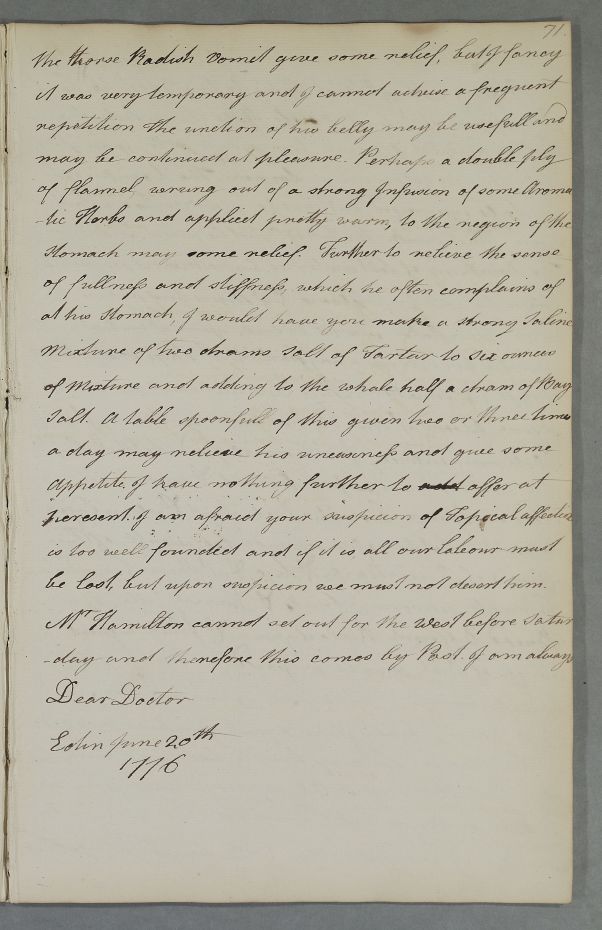 71.
the Horse Radish vomit give some relief, but I fancy
it was very temporary and I cannot advise a frequent
repetition the unction of his belly may be usefull and
may be continued at pleasure. Perhaps a double ply
of flannel, wrung out of a strong Infusion of some Aroma
-tic Herbs and applied pretty warm, to the region of the
Stomach may some relief. Further to relieve the sense
of fullness and stiffness, which he often complains of
at his Stomach, I would have you make a strong Saline
Mixture of two drams Salt of Tartar to six ounces
of Mixture and adding to the whole half a dram of Bay
Salt. A table spoonfull of this given two or three times
a day may relieve his uneasiness and give some
appetite, I have nothing further to add offer at
peresent. I am afraid your suspicion of Topical affection
is too well founded and if it is all our labour must
be lost, but upon suspicion we must not desert him.
Mr Hamilton cannot set out for the West before Satur
-day and therefore this comes by Post. I am always
Dear Doctor
Edin June 20th
1776